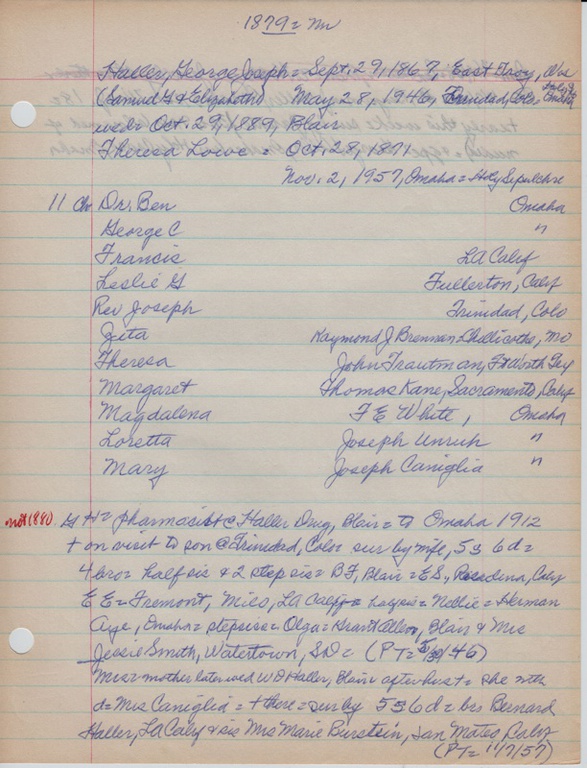 1879 = Nn
Haller, George Joseph = Sept. 29, 1867, East Troy, Wis
(Samuel G & Elizabeth) May 28, 1946, Trinidad, Colo = Omaha
wed = Oct. 29, 1889, Blair
Theresa Lowe = Oct. 28, 1871
Nov. 2, 1957, Omaha = Holy Sepulchre
11 ch Dr. Ben Omaha
George C "
Francis LA Calif
Leslie G Fullerton, Calif
Rev Joseph Trinidad, Colo
Zita Raymond J Brennan, Chillicothe, Mo
Theresa John Trautman, Ft Worth Tex
Margaret Thomas Kane, Sacramento, Calif
Magdalena F E White, Omaha
Loretta Joseph Unruh "
Mary Joseph Caniglia "
not 1880. G H = pharmacist @ Haller Drug, Blair = to Omaha 1912
+ on visit to son @ Trinidad, Colo = sur by wife, 5 s 6 d =
4 bro = half sis & 2 step sis = B F, Blair = E S, Pasadena, Calif
E E = Fremont, Milo, LA Calif = half sis = Nellie = Herman
Aye, Omaha = stepsis = Olga = Grant Allen, Blair & Mrs
Jessie Smith, Watertown, SD = (PT = 5/30/46)
Mrs = mother later wed W D Haller, Blair = after hus + = she
d = Mrs Caniglia = + there = sur by 5 s 6 d = bro Bernard
Haller, LA Calif & sis Mrs Marie Burstein, San Mateo, Calif
(PT = 11/7/57)